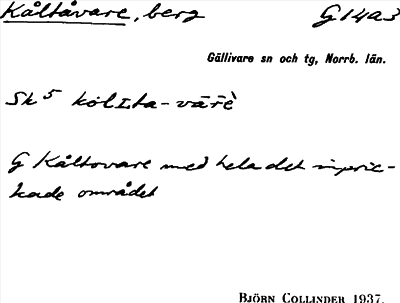 Kåltåvare, berg G14a3
Gällivare sn och tg, Norrb. län.
Sk 5 kòlIta-vārè
G Kåltovare med hela det inpric-
kade området
BJÖRN COLLINDER 1937.